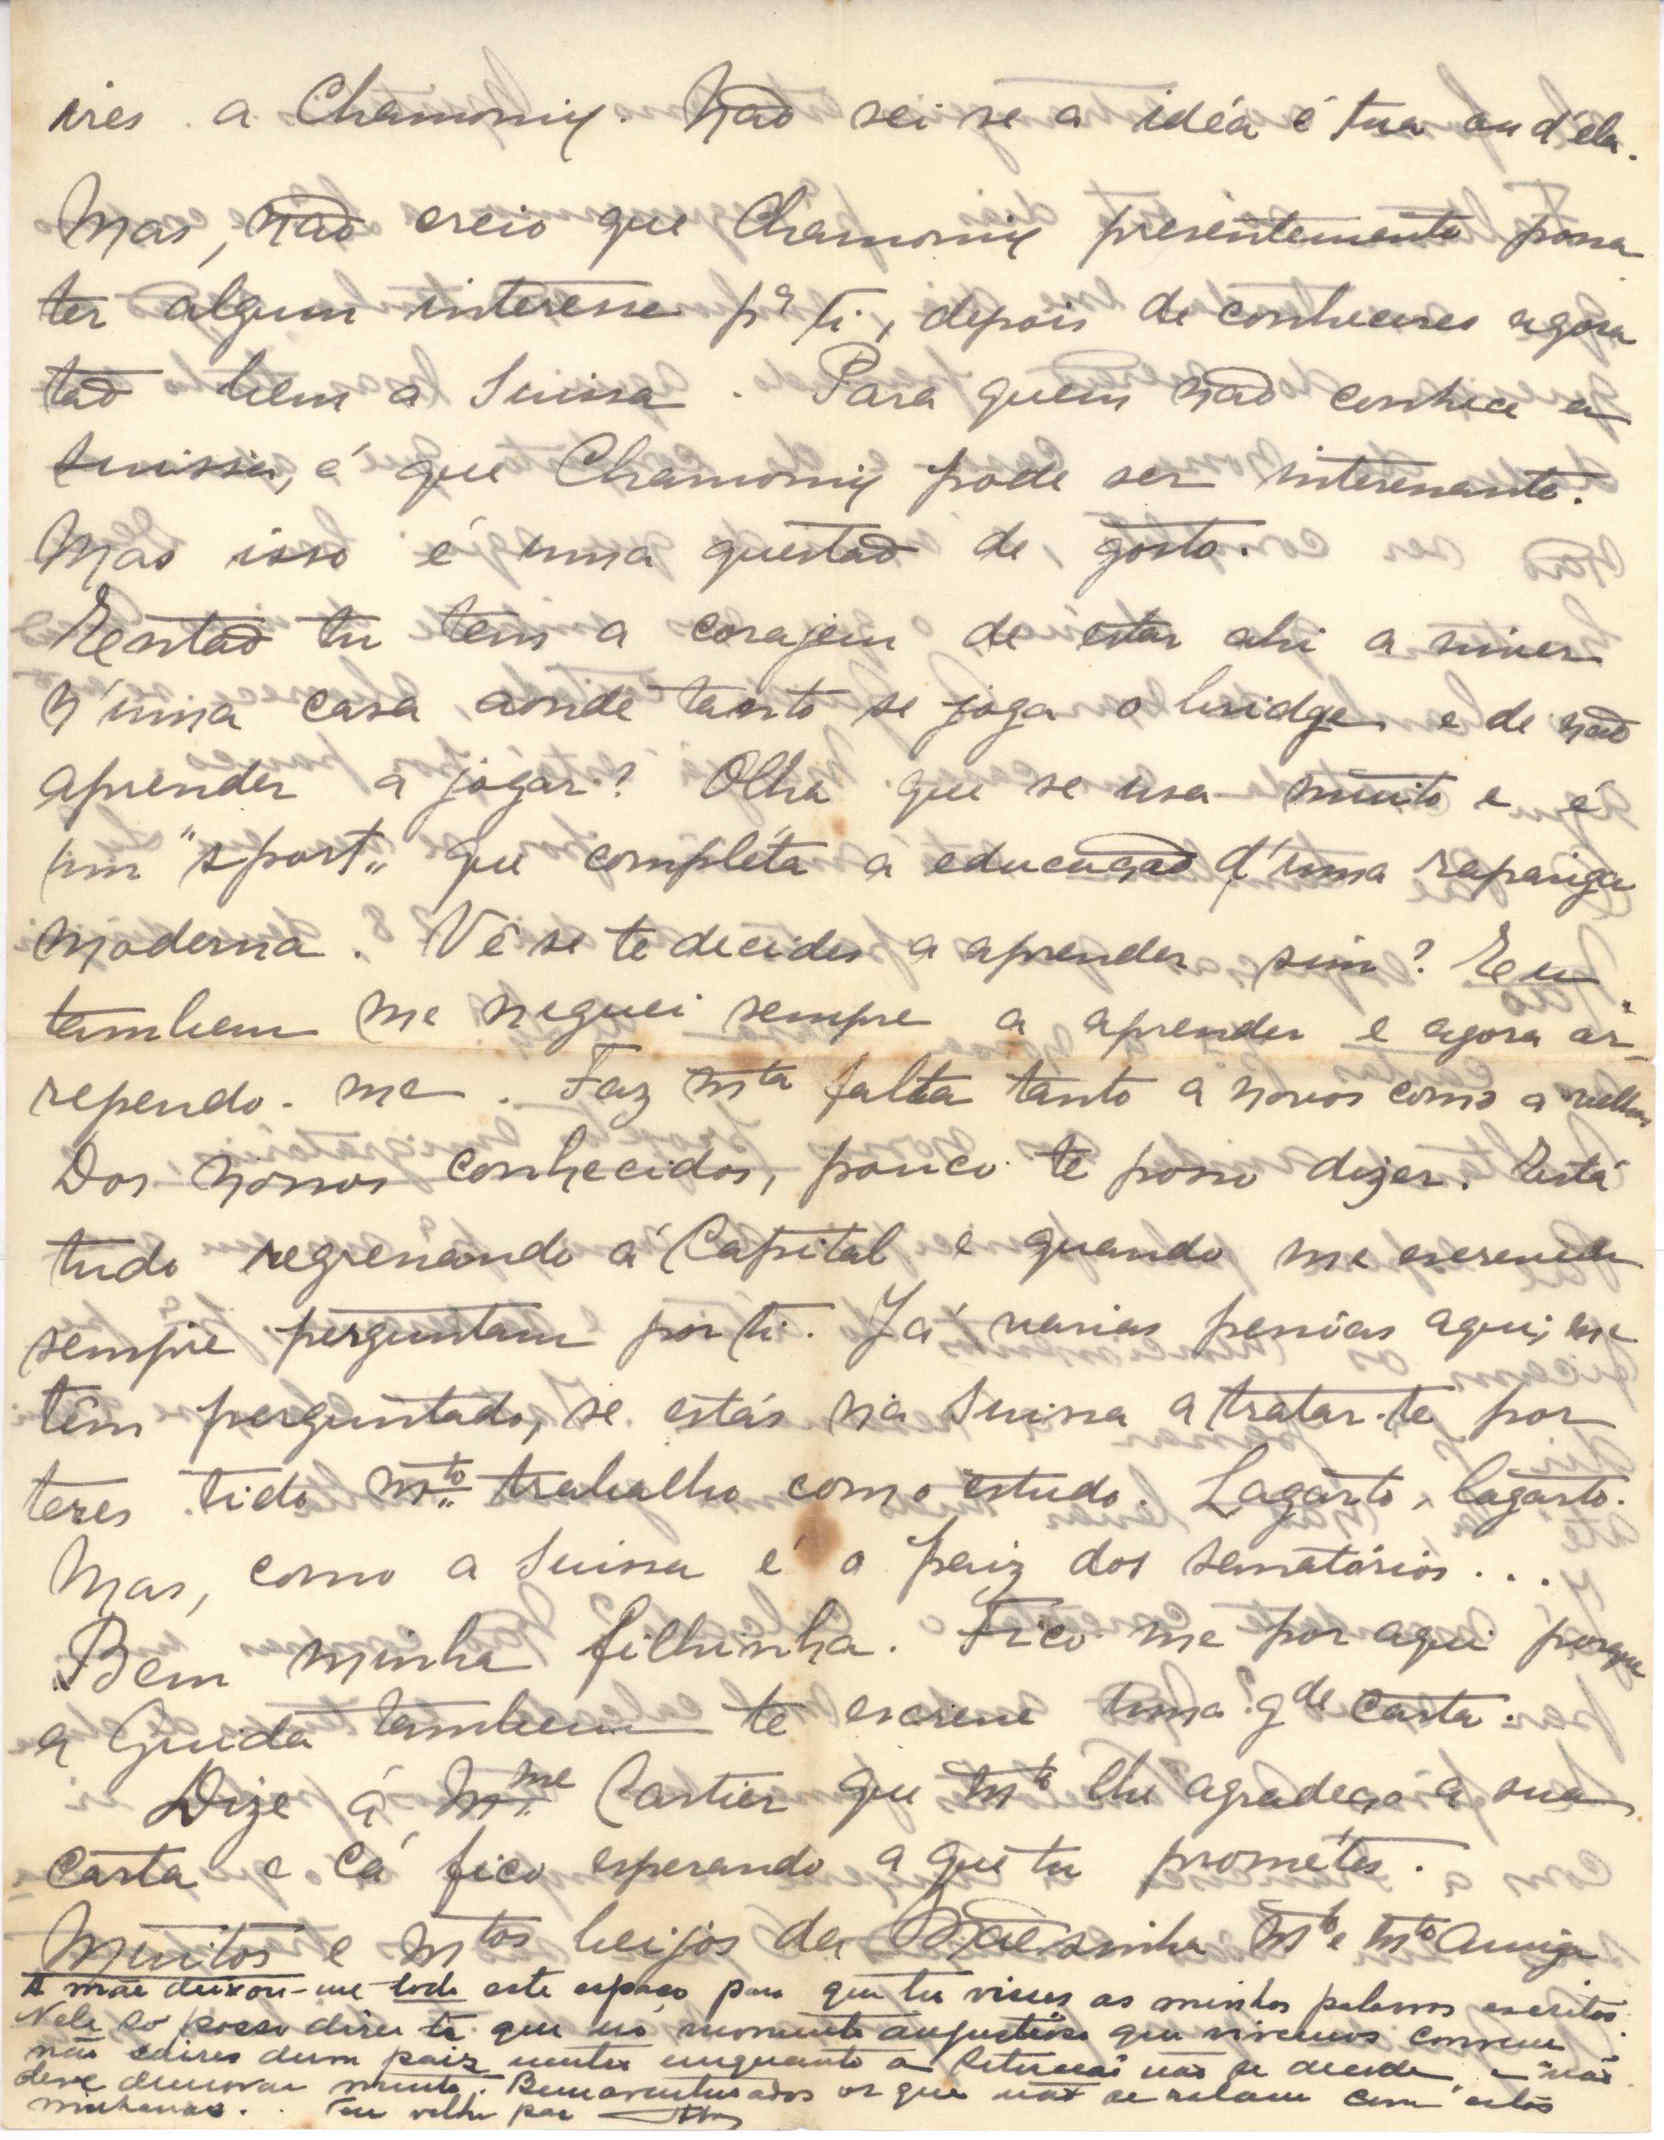 ires a Chamonix. Não sei se a idéa é tua ou d'ela.
Mas, não creio que Chamonix presentemente possa
ter algum interesse pª ti, depois de conheceres agora
tão bem a Suissa. Para quem não conhece a
Suissa, é que Chamonix pode ser interessante.
Mas isso é uma questão de gosto.
Então tu tens a corajem de estar ahi a viver
n'uma casa aonde tanto se joga o bridge e de não
aprender a jogar? Olha que se usa muito e é
um "sport" que compléta a educação d'uma rapariga
moderna. Vê se te decides a aprender sim? Eu
tambem me neguei sempre a aprender e agora ar-
rependo-me. Faz mta falta tanto a novos como a velhos
Dos nossos conhecidos, pouco te posso dizer. Está
tudo regressando á Capital e quando me escrevem
sempre perguntam por ti. Já varias pessôas aqui, me
têm perguntado, se estás na Suissa a tratar-te por
teres tido mto trabalho com o estudo. Lagarto, lagarto.
Mas, como a Suissa é o paiz dos sanatórios...
Bem minha filhinha. Fico-me por aqui porque
a Guida tambem te escreve uma gde carta.
Dize á Mme Cartier que mto lhe agradeço a sua
carta e cá fico esperando a que tu prométes.
Muitos e mtos beijos da Mãesinha mto e mto Amiga
A mãe deixou-me todo este espaço para que tu visses as minhas palavras escritas.
Nele só posso dizer-te que no momento angustioso que vivemos convem
não saires dum paiz neutro enquanto a situação não se decide, e não
deve demorar muito. Bemaventurados os que não se ralam com estas
Teu velho pae